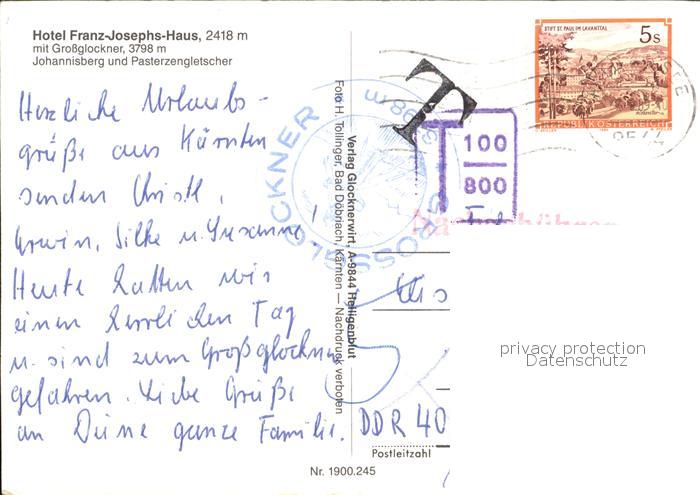 Hotel Franz-Josephs-Haus, 2418 m
mit Großglockner, 3798 m
Johannisberg und Pasterzengletscher
Herzliche Urlaubs-
grüße aus Kärnten
senden Christl,
Erwin, Silke u. Susanne!
Heute hatten wir
einen herrlichen Tag
u. sind zum Großglockner
gefahren. Liebe Grüße
an Deine ganze Familie.
Nr. 1900.245
Verlag Glocknerwirt, A-9844 Heiligenblut
Foto H. Tollinger, Bad Döbriach, Kärnten — Nachdruck verboten
GROSSGLOCKNER
STIFT ST. PAUL IM LAVANTTAL
5s
REPUBLIK ÖSTERREICH
T
T 100
800
DDR 40
Postleitzahl
privacy protection
Datenschutz